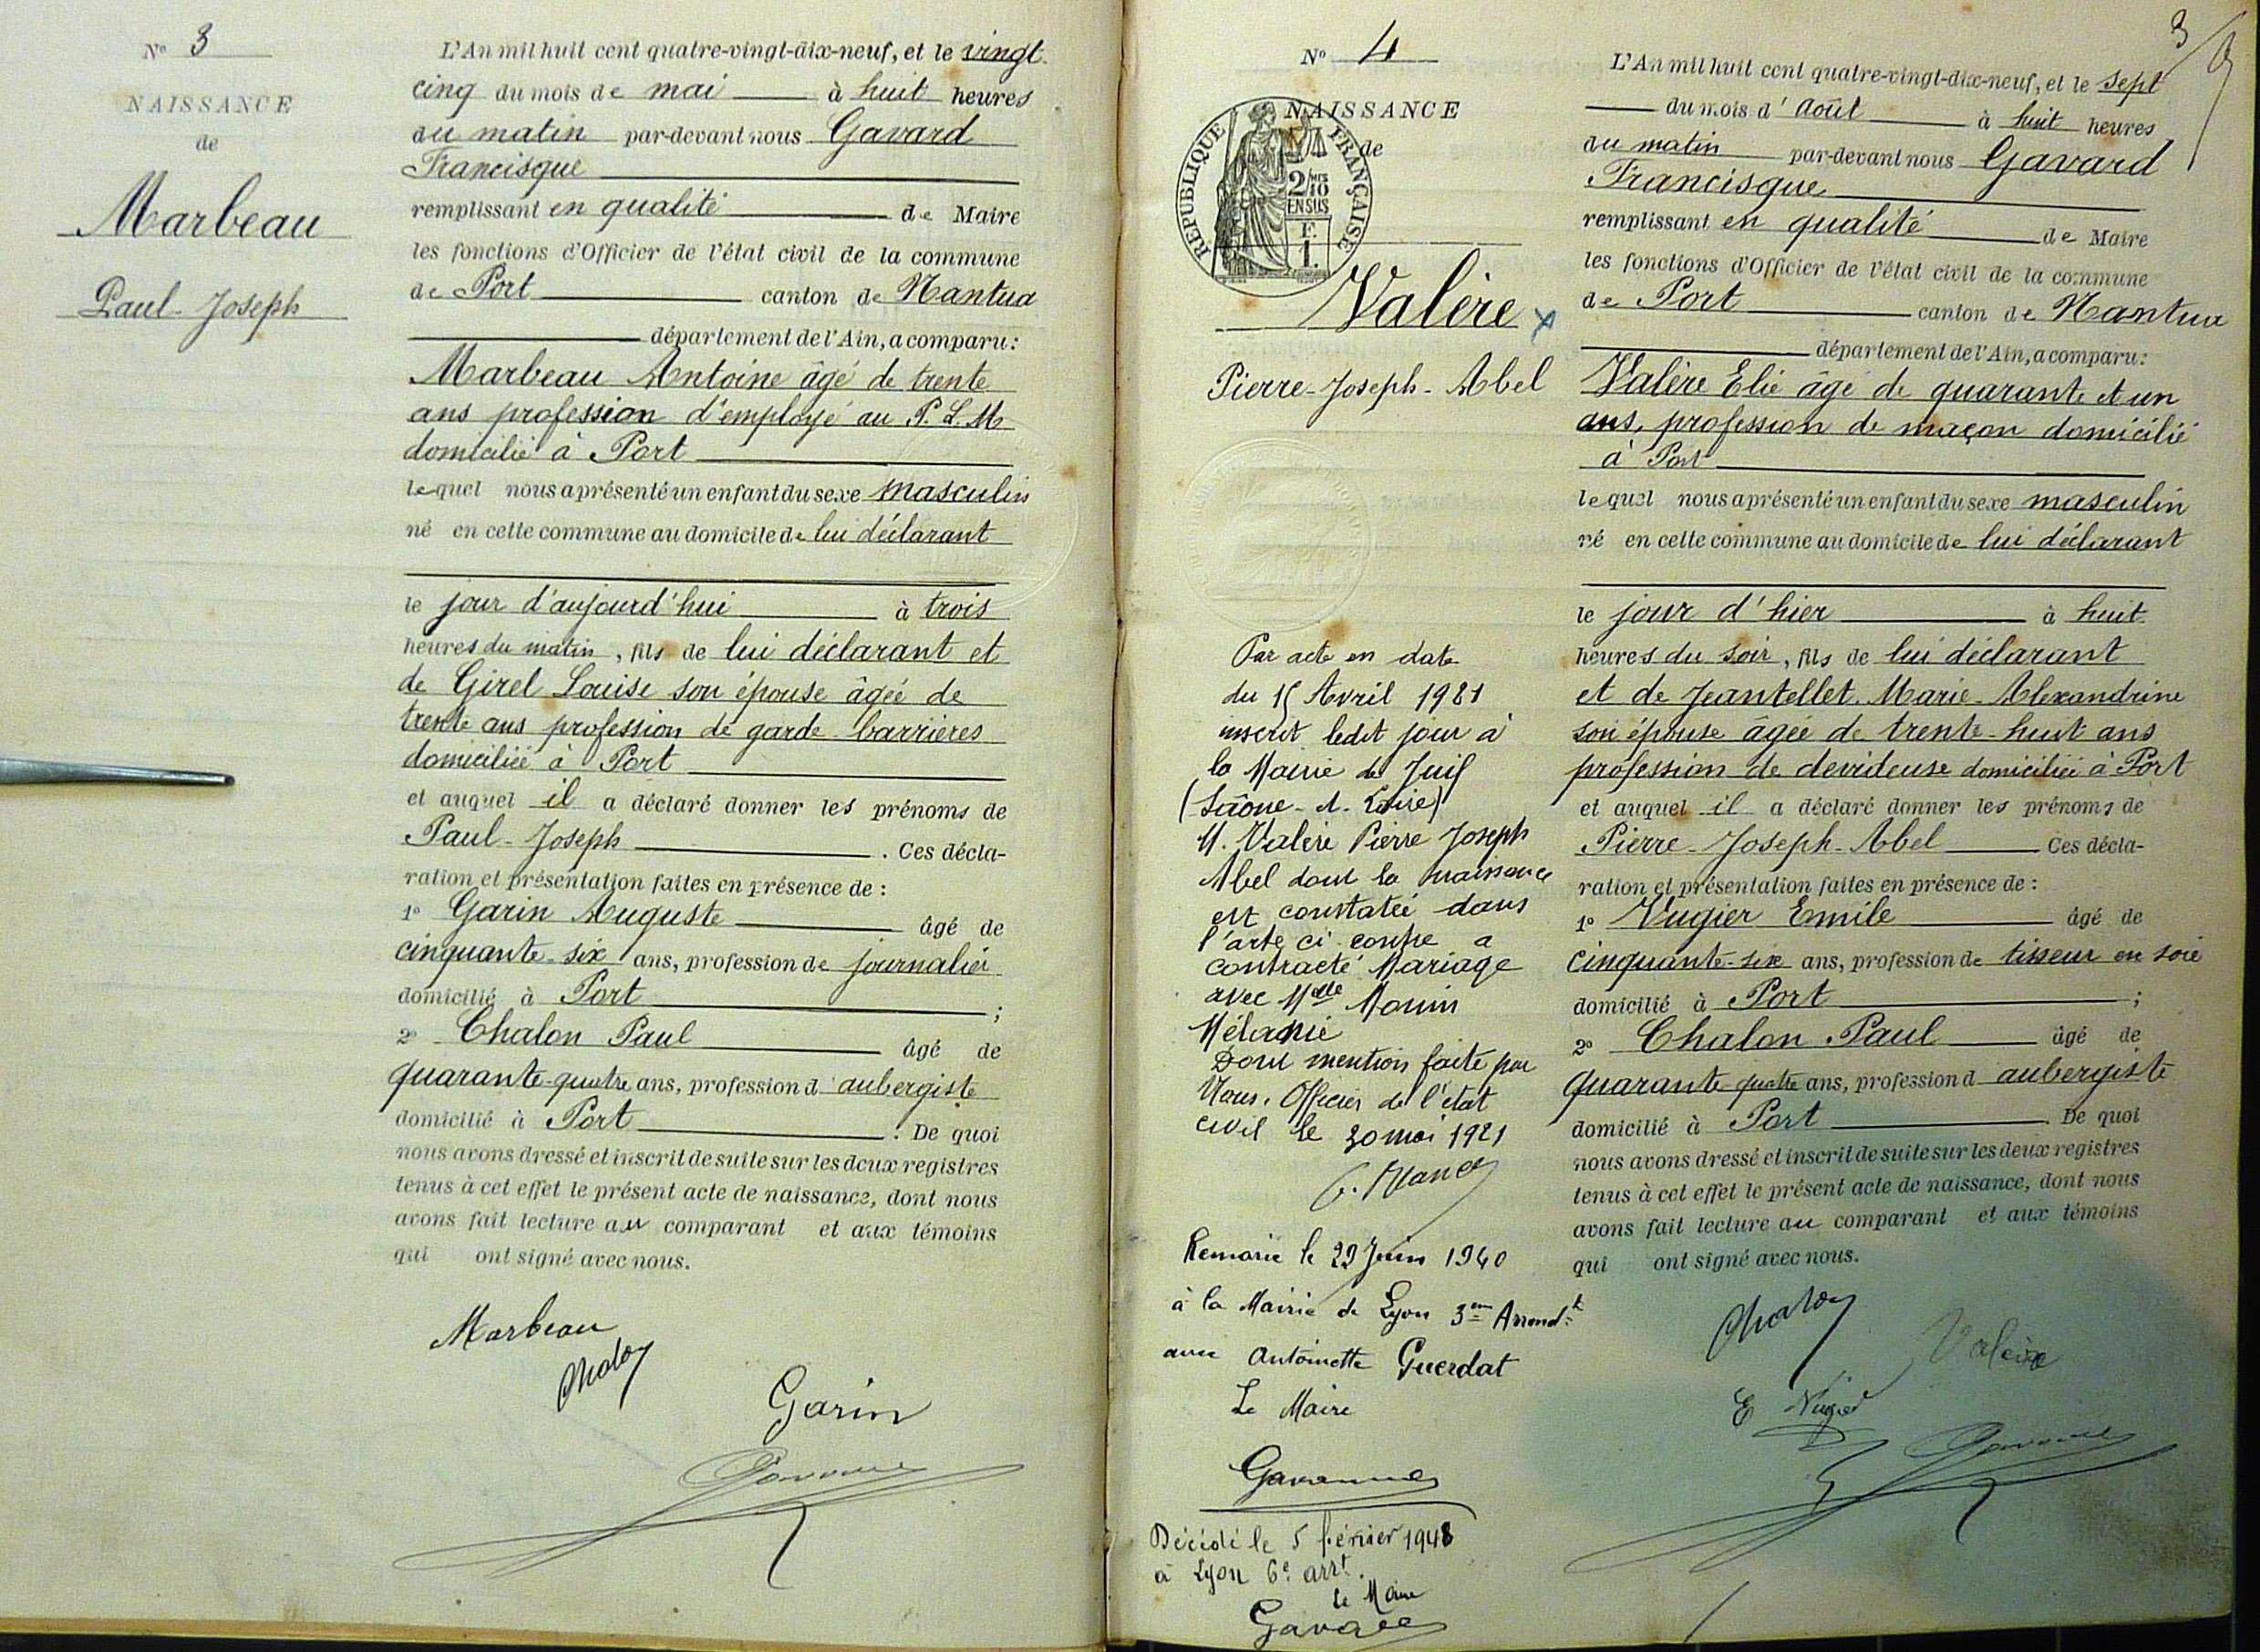 N° 3
NAISSANCE
de
Marbeau
Paul-Joseph
L'An mil huit cent quatre-vingt-dix-neuf, et le vingt
cinq du mois de mai à huit heures
du matin par-devant nous Gavard
Francisque
remplissant en qualité de Maire
les fonctions d'Officier de l'état civil de la commune
de Port canton de Nantua
département de l'Ain, a comparu :
Marbeau Antoine âgé de trente
ans profession d'employé au P. L. M
domicilié à Port
lequel nous a présenté un enfant du sexe masculin
né en cette commune au domicile de lui déclarant
le jour d'aujourd'hui à trois
heures du matin, fils de lui déclarant et
de Girel Louise son épouse âgée de
trente ans profession de garde-barrières
domiciliée à Port
et auquel il a déclaré donner les prénoms de
Paul-Joseph . Ces décla-
ration et présentation faites en présence de :
1° Garin Auguste âgé de
cinquante-six ans, profession de journalier
domicilié à Port ;
2° Chalon Paul âgé de
quarante-quatre ans, profession d'aubergiste
domicilié à Port . De quoi
nous avons dressé et inscrit de suite sur les deux registres
tenus à cet effet le présent acte de naissance, dont nous
avons fait lecture au comparant et aux témoins
qui ont signé avec nous.
Marbeau
Chalon
Garin
N° 4
NAISSANCE
de
REPUBLIQUE FRANÇAISE
2/10
EN SUS
F.
1.
Valère
Pierre-Joseph-Abel
Par acte en date
du 15 Avril 1921
inscrit ledit jour à
la Mairie de Juif
(Saône-et-Loire)
M. Valère Pierre Joseph
Abel dont la naissance
est constatée dans
l'acte ci-contre a
contracté Mariage
avec Melle
Mélanie
Dont mention faite par
Nous, Officier de l'état
civil le 20 mai 1921
Remarié le 29 Juin 1940
à la Mairie de Lyon 3em Arrondt
avec Antoinette Guerdat
Le Maire
Décédé le 5 février 1948
à Lyon 6e arrt.
le Maire
3
L'An mil huit cent quatre-vingt-dix-neuf, et le sept
du mois d'Août à huit heures
du matin par-devant nous Gavard
Francisque
remplissant en qualité de Maire
les fonctions d'Officier de l'état civil de la commune
de Port canton de Nantua
département de l'Ain, a comparu :
Valère Elie âgé de quarante et un
ans, profession de maçon domicilié
à Port
lequel nous a présenté un enfant du sexe masculin
né en cette commune au domicile de lui déclarant
le jour d'hier à huit
heures du soir, fils de lui déclarant
et de Jeantellet Marie-Alexandrine
son épouse âgée de trente-huit ans
profession de devideuse domiciliée à Port
et auquel il a déclaré donner les prénoms de
Pierre-Joseph-Abel Ces décla-
ration et présentation faites en présence de :
1° Vugier Emile âgé de
cinquante-six ans, profession de tisseur en soie
domicilié à Port ;
2° Chalon Paul âgé de
quarante-quatre ans, profession d'aubergiste
domicilié à Port . De quoi
nous avons dressé et inscrit de suite sur les deux registres
tenus à cet effet le présent acte de naissance, dont nous
avons fait lecture au comparant et aux témoins
qui ont signé avec nous.
Chalon
Valère
E Vugier